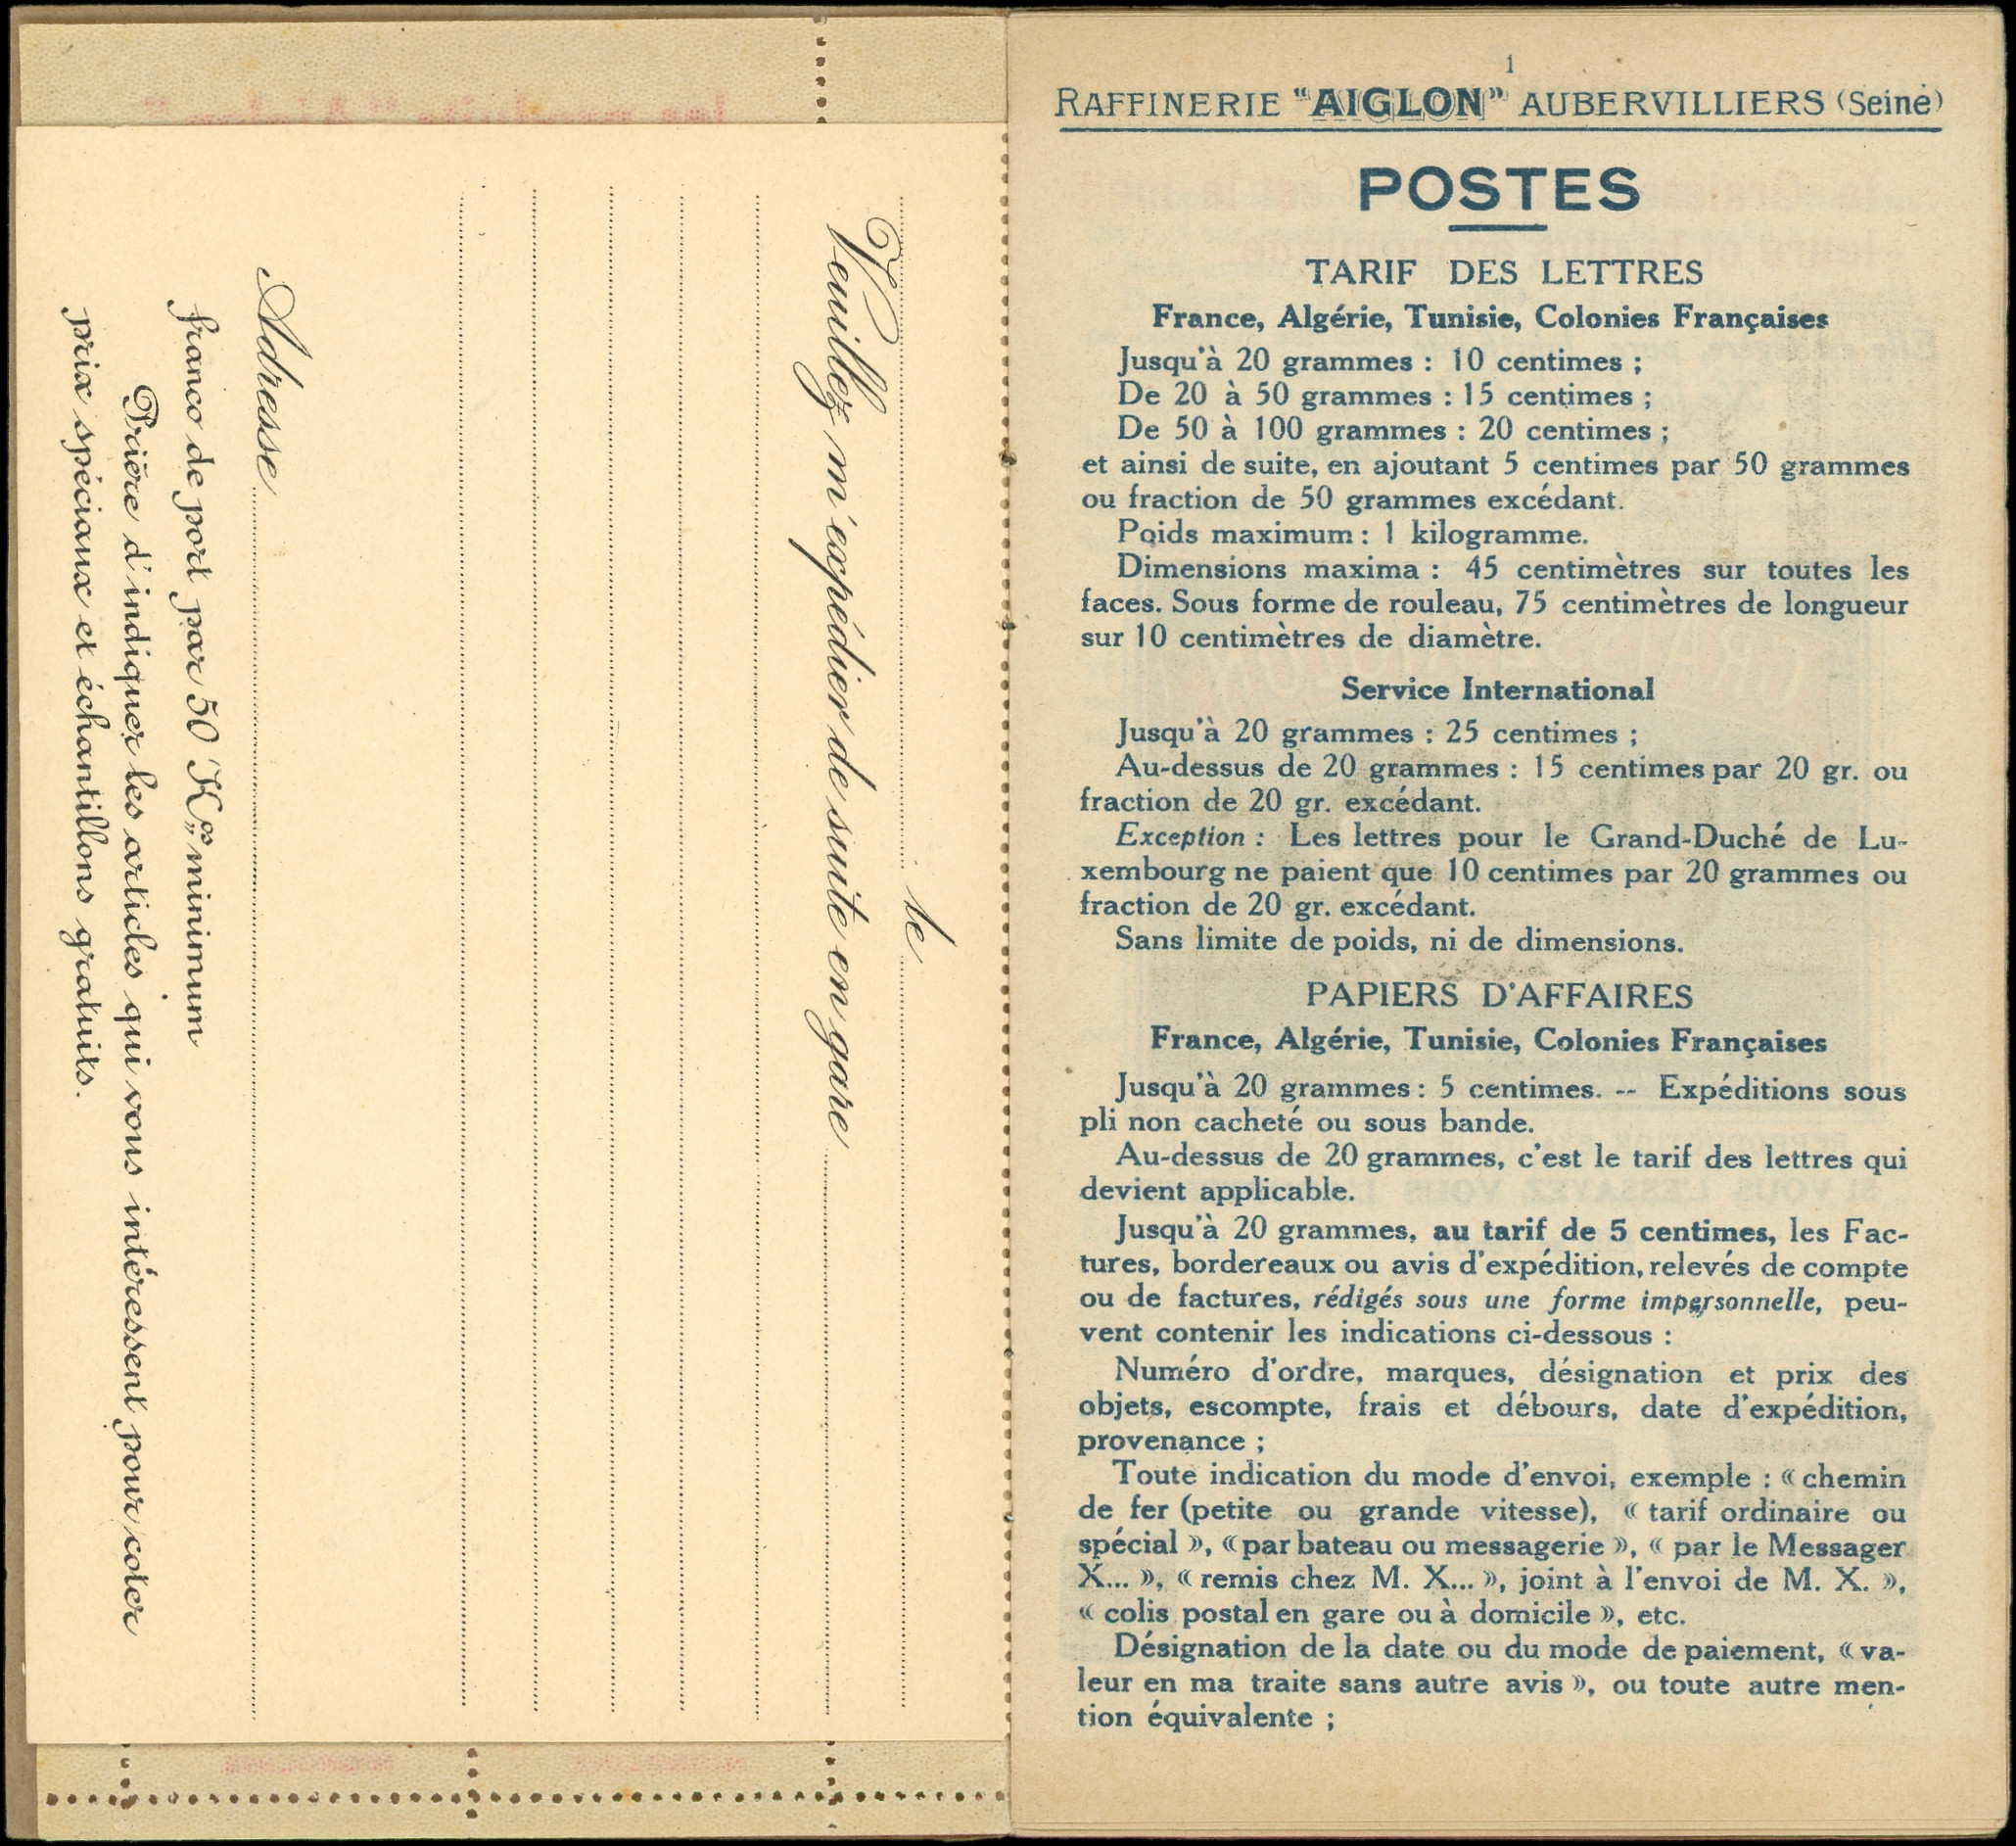 le
Veuillez m'expédier de suite en gare
Adresse
franco de port par 50 Kos minimum
Prière d'indiquer les articles qui vous intéressent pour coter
prix spéciaux et échantillons gratuits.
1
RAFFINERIE "AIGLON" AUBERVILLIERS (Seine)
POSTES
TARIF DES LETTRES
France, Algérie, Tunisie, Colonies Françaises
Jusqu'à 20 grammes : 10 centimes ;
De 20 à 50 grammes : 15 centimes ;
De 50 à 100 grammes : 20 centimes ;
et ainsi de suite, en ajoutant 5 centimes par 50 grammes
ou fraction de 50 grammes excédant.
Poids maximum : 1 kilogramme.
Dimensions maxima : 45 centimètres sur toutes les
faces. Sous forme de rouleau, 75 centimètres de longueur
sur 10 centimètres de diamètre.
Service International
Jusqu'à 20 grammes : 25 centimes ;
Au-dessus de 20 grammes : 15 centimes par 20 gr. ou
fraction de 20 gr. excédant.
Exception : Les lettres pour le Grand-Duché de Lu-
xembourg ne paient que 10 centimes par 20 grammes ou
fraction de 20 gr. excédant.
Sans limite de poids, ni de dimensions.
PAPIERS D'AFFAIRES
France, Algérie, Tunisie, Colonies Françaises
Jusqu'à 20 grammes : 5 centimes. -- Expéditions sous
pli non cacheté ou sous bande.
Au-dessus de 20 grammes, c'est le tarif des lettres qui
devient applicable.
Jusqu'à 20 grammes, au tarif de 5 centimes, les Fac-
tures, bordereaux ou avis d'expédition, relevés de compte
ou de factures, rédigés sous une forme impersonnelle, peu-
vent contenir les indications ci-dessous :
Numéro d'ordre, marques, désignation et prix des
objets, escompte, frais et débours, date d'expédition,
provenance ;
Toute indication du mode d'envoi, exemple : « chemin
de fer (petite ou grande vitesse), « tarif ordinaire ou
spécial », « par bateau ou messagerie », « par le Messager
X... », « remis chez M. X... », joint à l'envoi de M. X. »,
« colis postal en gare ou à domicile », etc.
Désignation de la date ou du mode de paiement, « va-
leur en ma traite sans autre avis », ou toute autre men-
tion équivalente ;